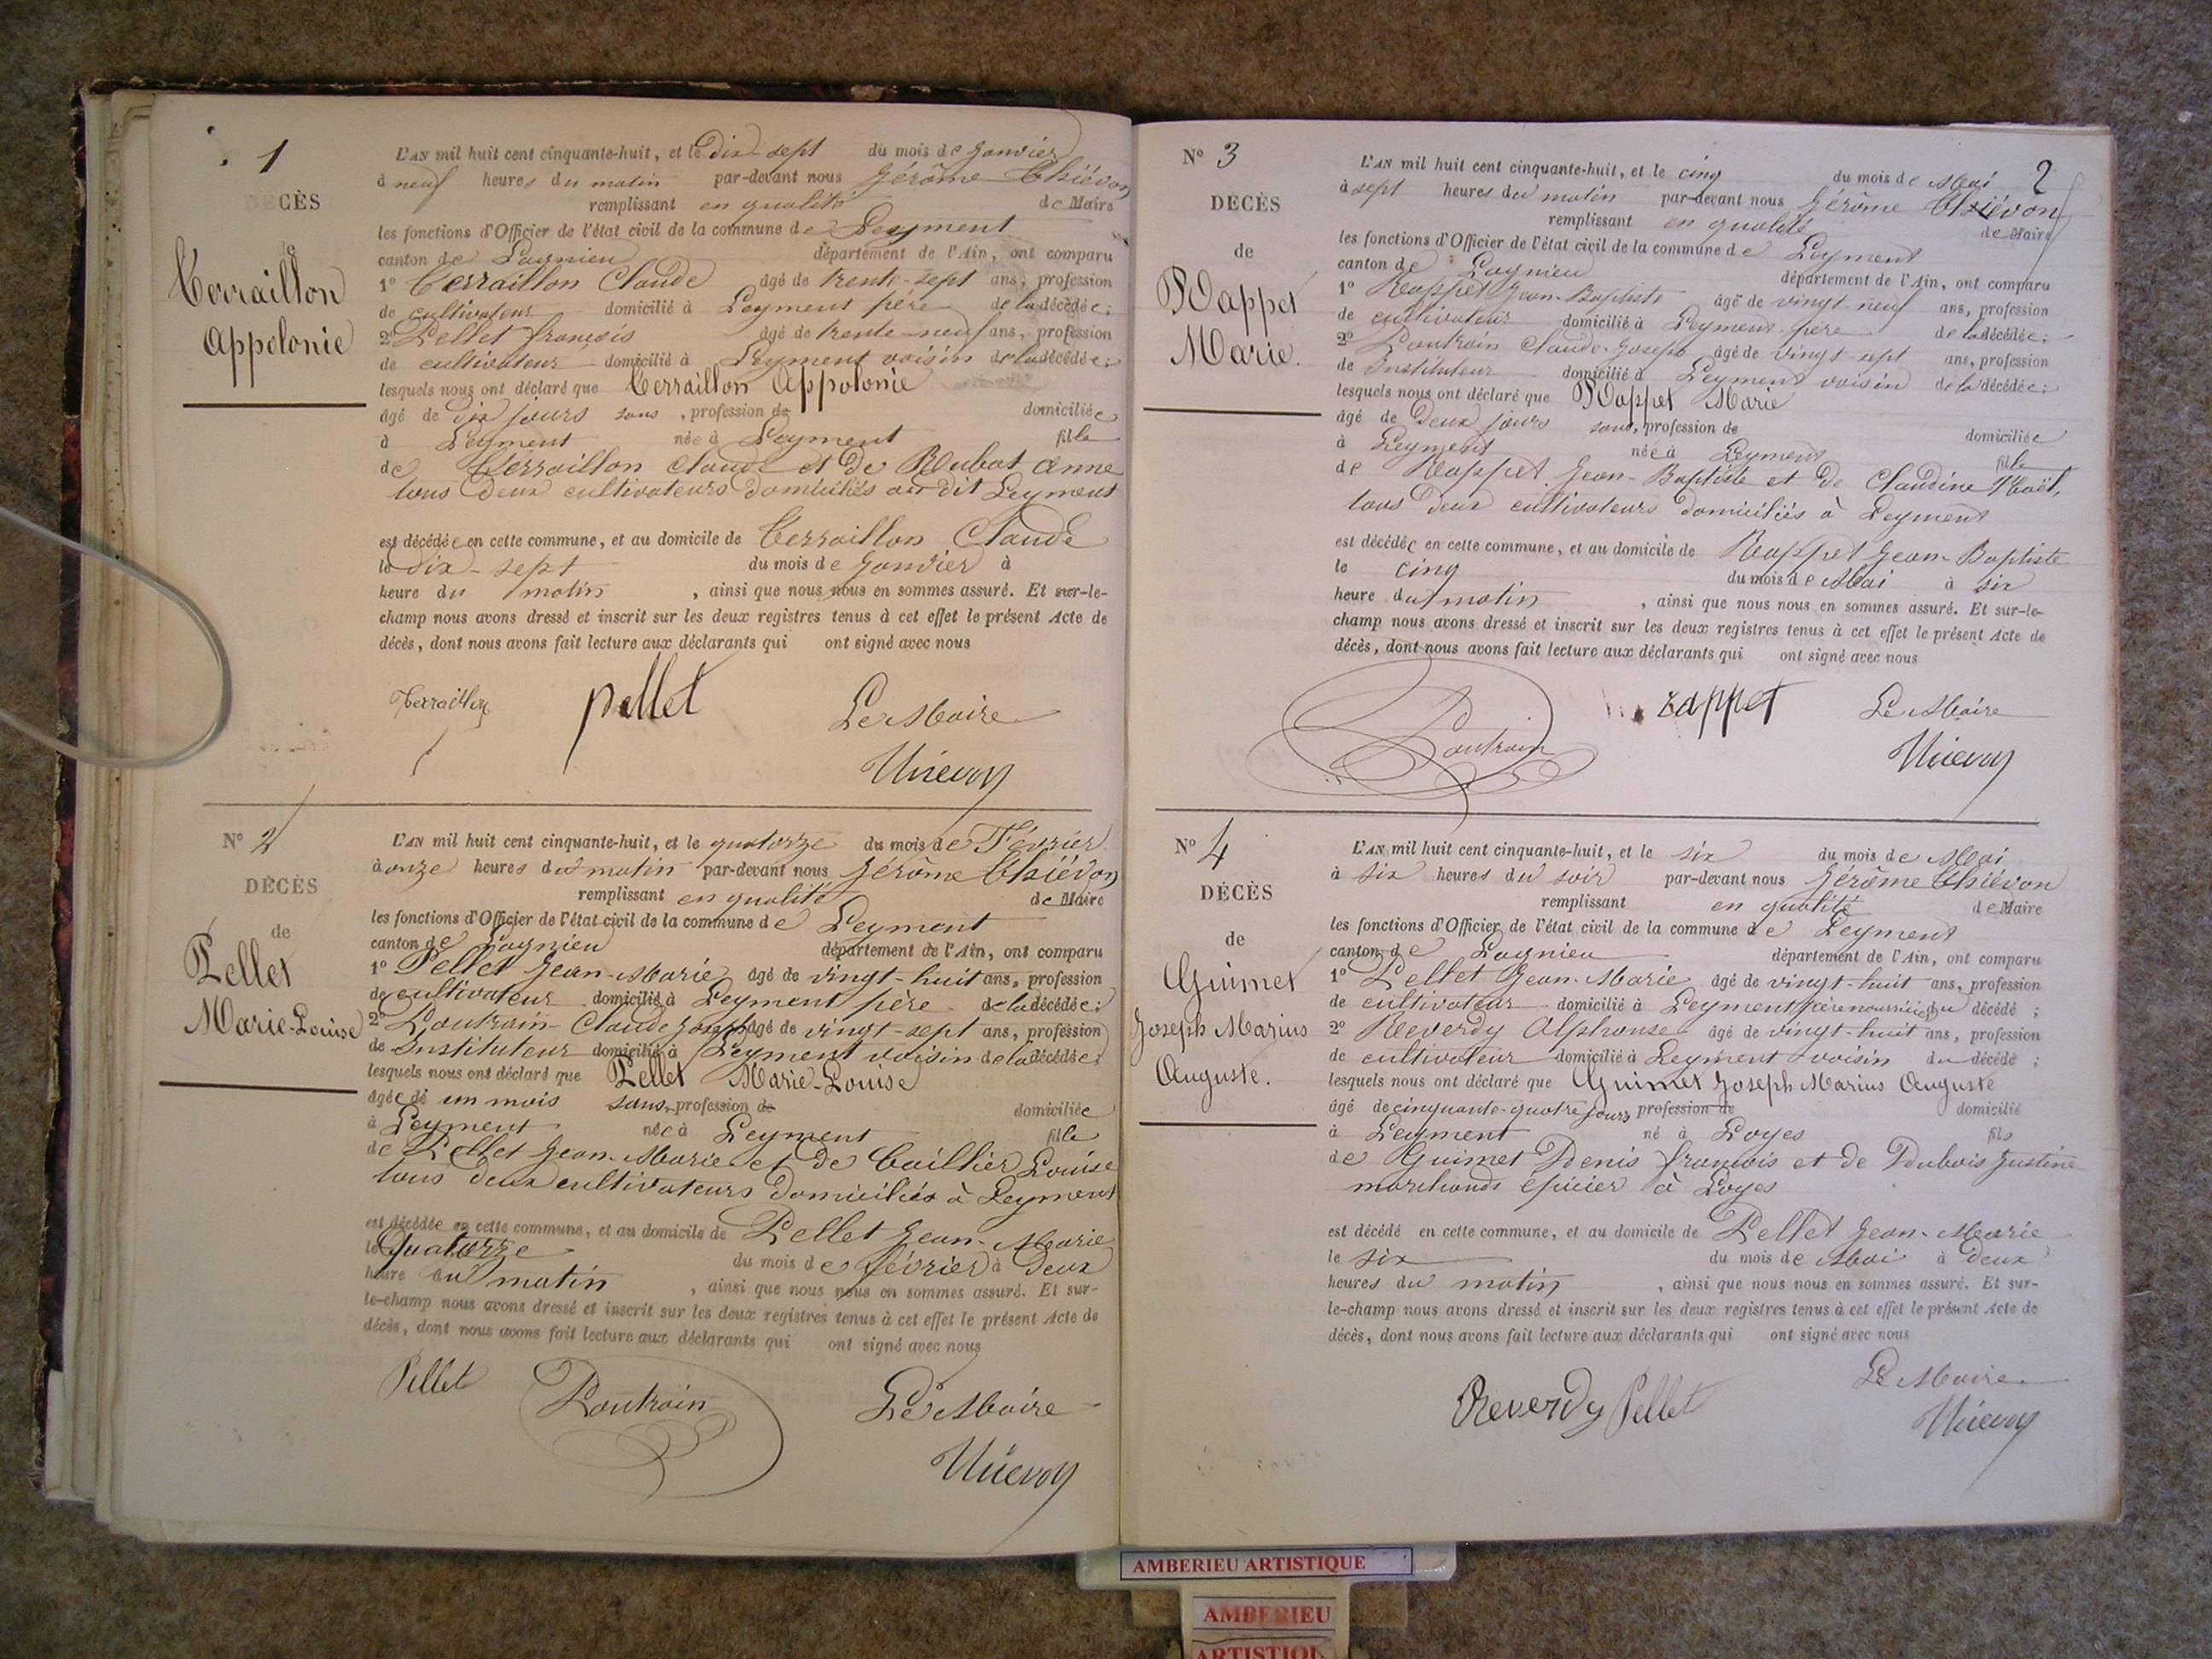 1
DÉCÈS
de
Terraillon
Appolonie
L'AN mil huit cent cinquante-huit, et le dix-sept du mois de Janvier
à neuf heures du matin par-devant nous Jérôme Thiévon
remplissant en qualité de Maire
les fonctions d'Officier de l'état civil de la commune de Leyment
canton de Lagnieu département de l'Ain, ont comparu
1° Terraillon Claude âgé de trente-sept ans, profession
de cultivateur domicilié à Leyment père de la décédée;
2° Pellet françois âgé de trente-neuf ans, profession
de cultivateur domicilié à Leyment voisin de la décédée;
lesquels nous ont déclaré que Terraillon Appolonie
âgé de dix jours sans, profession de domiciliée
à Leyment née à Leyment fille
de Terraillon Claude et de Rubat Anne
tous deux cultivateurs domiciliés au dit Leyment
est décédée en cette commune, et au domicile de Terraillon Claude
le dix-sept du mois de Janvier à
heure du matin, ainsi que nous nous en sommes assuré. Et sur-le-
champ nous avons dressé et inscrit sur les deux registres tenus à cet effet le présent Acte de
décès, dont nous avons fait lecture aux déclarants qui ont signé avec nous
Terraillon pellet Le Maire
Thiévon
N° 2
DÉCÈS
de
Pellet
Marie-Louise
L'AN mil huit cent cinquante-huit, et le quatorze du mois de Février
à onze heures du matin par-devant nous Jérôme Thiévon
remplissant en qualité de Maire
les fonctions d'Officier de l'état civil de la commune de Leyment
canton de Lagnieu département de l'Ain, ont comparu
1° Pellet Jean-Marie âgé de vingt-huit ans, profession
de cultivateur domicilié à Leyment père de la décédée;
2° Poutrain Claude Joseph âgé de vingt-sept ans, profession
de Instituteur domicilié à Leyment voisin de la décédée;
lesquels nous ont déclaré que Pellet Marie-Louise
âgée de un mois sans, profession de domiciliée
à Leyment née à Leyment fille
de Pellet Jean-Marie et de Caillier Louise
tous deux cultivateurs domiciliés à Leyment
est décédée en cette commune, et au domicile de Pellet Jean-Marie
le Quatorze du mois de février à deux
heure du matin, ainsi que nous nous en sommes assuré. Et sur-
le-champ nous avons dressé et inscrit sur les deux registres tenus à cet effet le présent Acte de
décès, dont nous avons fait lecture aux déclarants qui ont signé avec nous
Pellet Poutrain Le Maire
Thiévon
2
N° 3
DÉCÈS
de
Rappet
Marie.
L'AN mil huit cent cinquante-huit, et le cinq du mois de Mai
à sept heures du matin par-devant nous Jérôme Thiévon
remplissant en qualité de Maire
les fonctions d'Officier de l'état civil de la commune de Leyment
canton de Lagnieu département de l'Ain, ont comparu
1° Rappet Jean-Baptiste âgé de vingt-neuf ans, profession
de cultivateur domicilié à Leyment père de la décédée;
2° Poutrain Claude-Joseph âgé de vingt-sept ans, profession
de Instituteur domicilié à Leyment voisin de la décédée;
lesquels nous ont déclaré que Rappet Marie
âgé de deux jours sans, profession de domiciliée
à Leyment née à Leyment fille
de Rappet Jean-Baptiste et de Claudine Noël,
tous deux cultivateurs domiciliés à Leyment
est décédée en cette commune, et au domicile de Rappet Jean-Baptiste
le cinq du mois de Mai à six
heure du matin, ainsi que nous nous en sommes assuré. Et sur-le-
champ nous avons dressé et inscrit sur les deux registres tenus à cet effet le présent Acte de
décès, dont nous avons fait lecture aux déclarants qui ont signé avec nous
Poutrain rappet Le Maire
Thiévon
N° 4
DÉCÈS
de
Guimet
Joseph Marius
Auguste.
L'AN mil huit cent cinquante-huit, et le six du mois de Mai
à six heures du soir par-devant nous Jérôme Thiévon
remplissant en qualité de Maire
les fonctions d'Officier de l'état civil de la commune de Leyment
canton de Lagnieu département de l'Ain, ont comparu
1° Pellet Jean-Marie âgé de vingt-huit ans, profession
de cultivateur domicilié à Leyment père nourricier du décédé;
2° Reverdy Alphonse âgé de vingt-huit ans, profession
de cultivateur domicilié à Leyment voisin du décédé;
lesquels nous ont déclaré que Guimet Joseph Marius Auguste
âgé de cinquante-quatre jours profession de domicilié
à Leyment né à Loyes fils
de Guimet Denis françois et de Dubois Justine
marchands épicier à Loyes
est décédé en cette commune, et au domicile de Pellet Jean-Marie
le six du mois de Mai à deux
heures du matin, ainsi que nous nous en sommes assuré. Et sur-
le-champ nous avons dressé et inscrit sur les deux registres tenus à cet effet le présent Acte de
décès, dont nous avons fait lecture aux déclarants qui ont signé avec nous
Reverdy Pellet Le Maire
Thiévon
AMBERIEU ARTISTIQUE
AMBERIEU
ARTISTIQU